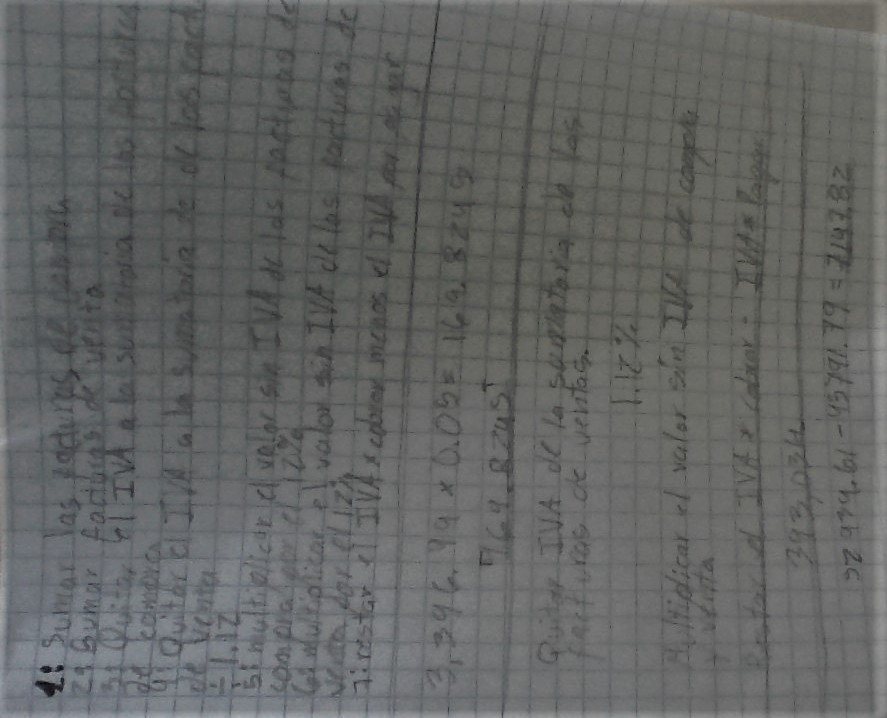 1: Sumar las facturas de compra
2: Sumar facturas de venta
3: Quitar el IVA a la sumatoria de las facturas
de compra
4: Quitar el IVA a la sumatoria de de las fact
de venta
÷ 1.12
5: multiplicar el valor sin IVA de las facturas de
compra por el 12%
6: multiplicar el valor sin IVA de las facturas de
venta por el 12%
7: restar el IVA x cobrar menos el IVA
3,396.49 x 0.05 = 169.8245
169.8245
Quitar IVA de la sumatoria de las
facturas de ventas.
1.12%
Multiplicar el valor sin IVA de compra
y venta
Restar el IVA x cobrar - IVA x Pagar
393,034
52934.61 - 45791.79 = 7142.82